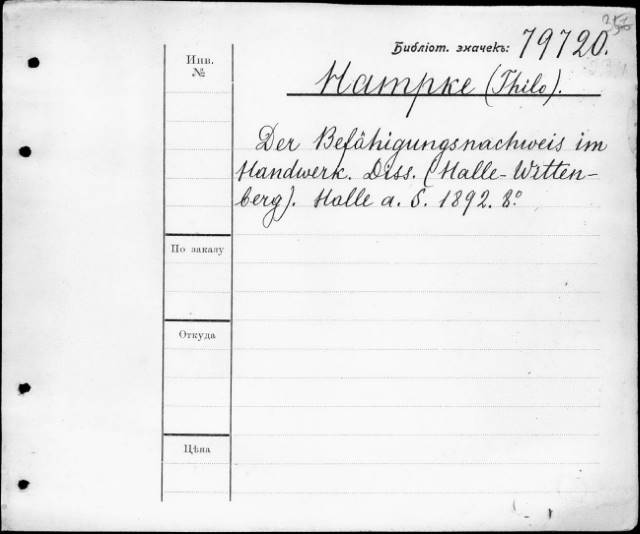 Библіот. значекъ: 79720.
Инв.
№
Hampke (Thilo).
Der Befähigungsnachweis im
Handwerk. Diss. (Halle-Witten-
berg). Halle a. S. 1892. 8º
По заказу
Откуда
Цѣна